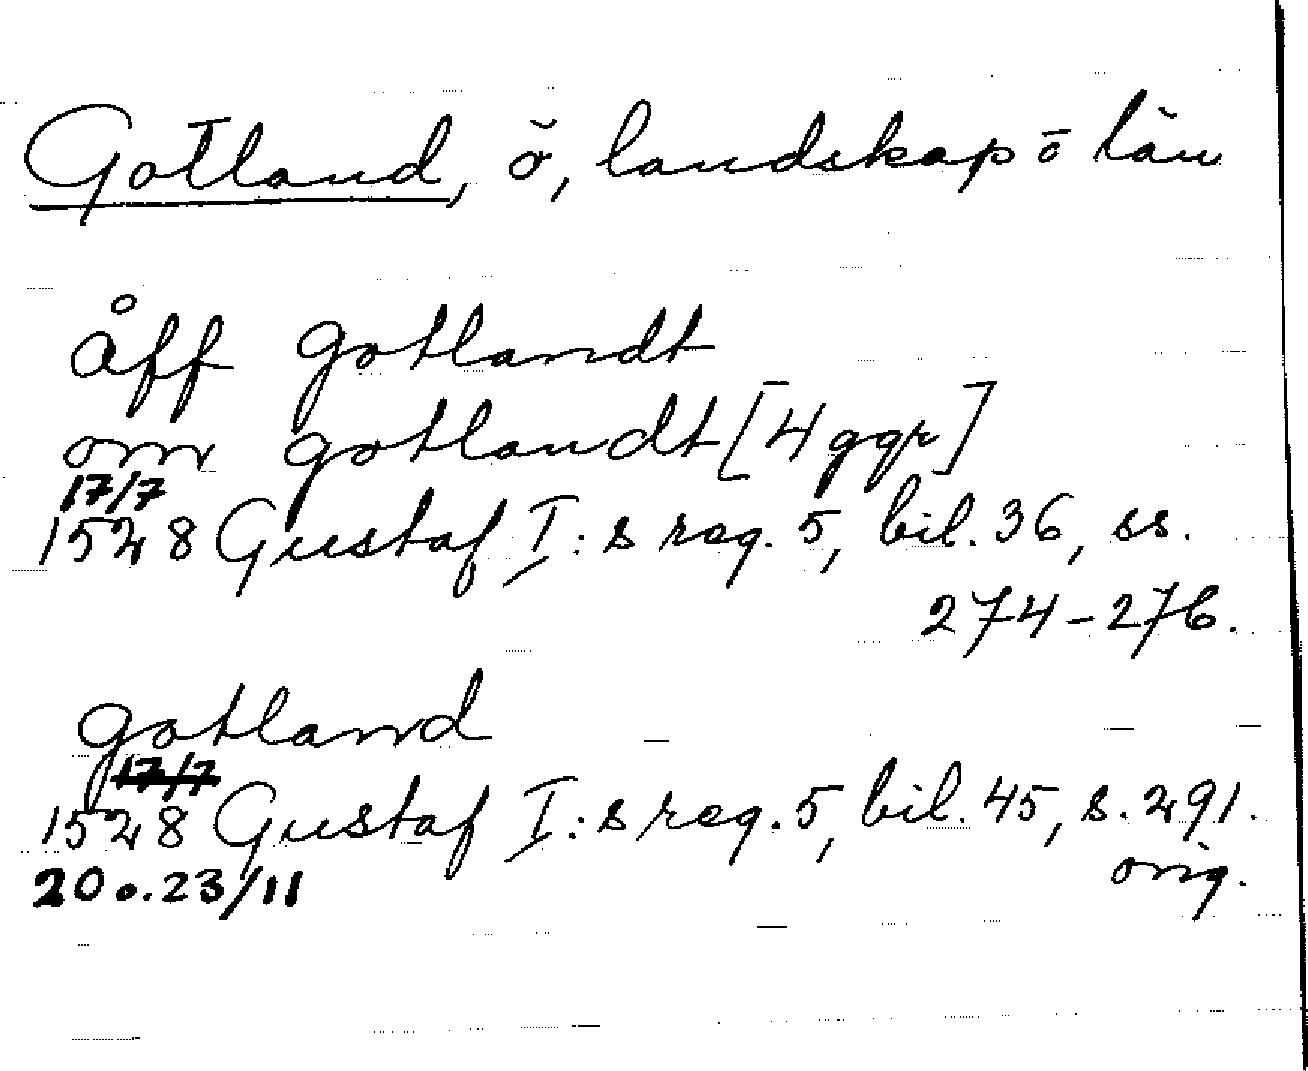 Gotland, ö, landskap o län
åff gotlandt
om gotlandt [4 ggr]
17/7
1528 Gustaf I:s reg. 5, bil. 36, ss.
274-276.
gotland
17/7
1528 Gustaf I:s reg. 5, bil. 45, s. 291.
20 o. 23/11 orig.